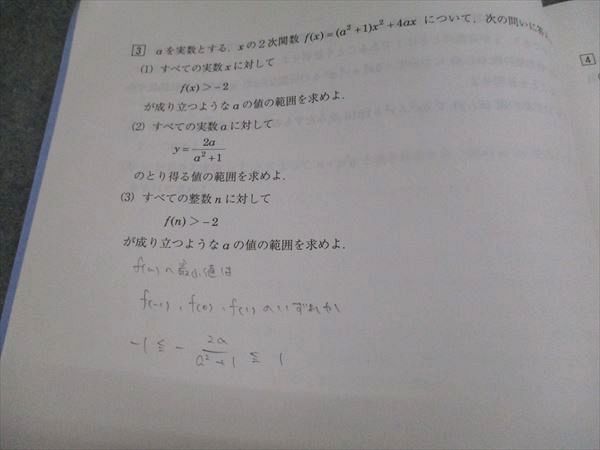 3 aを実数とする．xの2次関数 f(x)=(a²+1)x²+4ax について，次の問いに答
(1) すべての実数xに対して
f(x)>-2
が成り立つようなaの値の範囲を求めよ．
(2) すべての実数aに対して
y=2a/(a²+1)
のとり得る値の範囲を求めよ．
(3) すべての整数nに対して
f(n)>-2
が成り立つようなaの値の範囲を求めよ．
f(n)の最小値は
f(-1), f(0), f(1)のいずれか
-1≦-2a/(a²+1)≦1
4